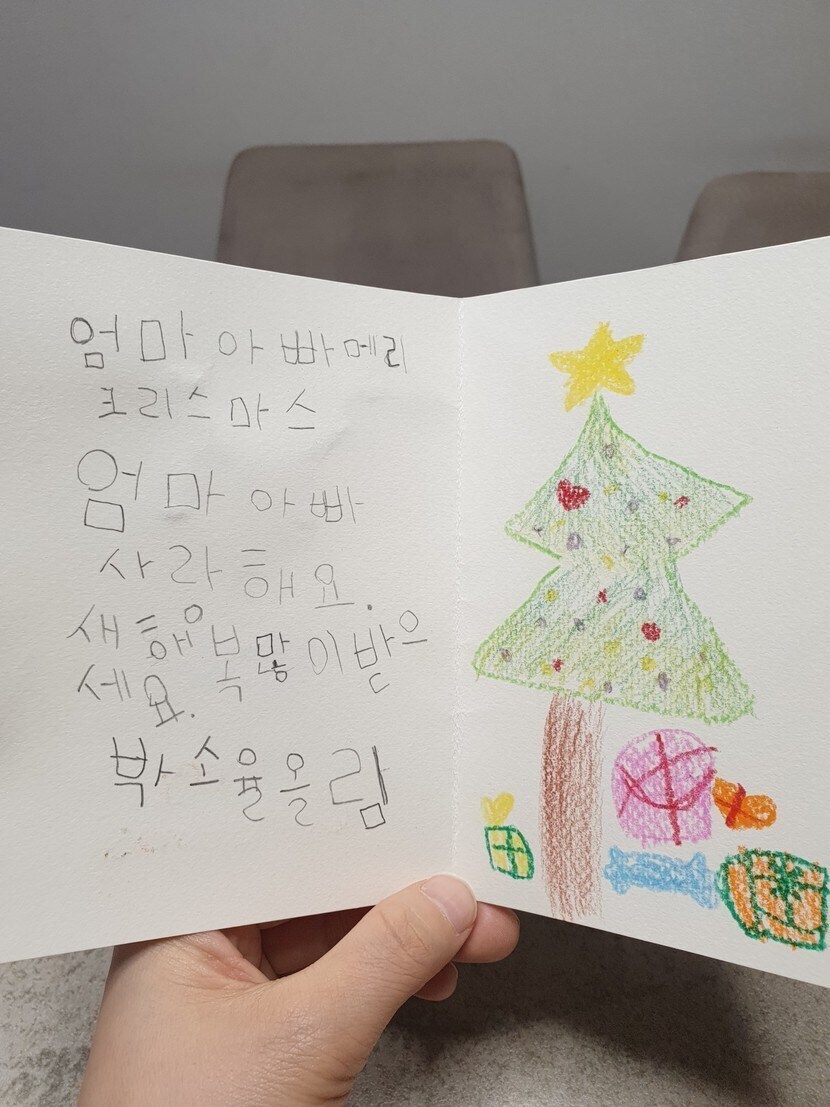 엄마아빠메리
크리스마스
엄마아빠
사라해요.
새해복많이받으
세요.
박소율올림